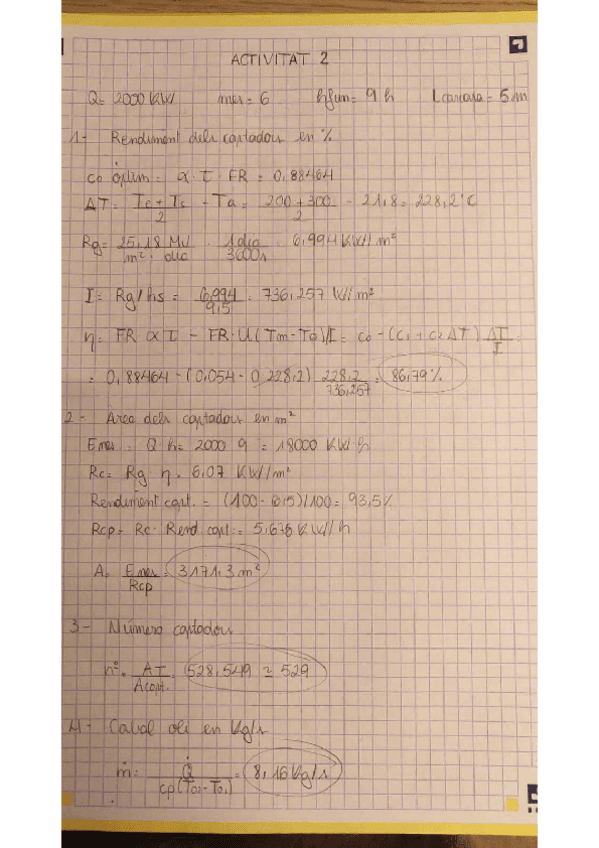 ACTIVITAT 2
Q= 2000 KW mes = 6 hfun = 9 h Lcarcasa = 5m
1- Rendiment dels captadors en %
co òptim = α · τ · FR = 0,88464
ΔT = Te + Ts / 2 - Ta = 200 + 300 / 2 - 21,8 = 228,2°C
Rg = 25,18 MJ / m² · dia · 1 dia / 3600s = 6,994 KWh/m²
I = Rg/hs = 6,994 / 9,5 = 736,257 W/m²
η = FR α τ - FR · U (Tm - Ta)/I = co - (c1 + c2 ΔT) ΔT / I
= 0,88464 - (0,054 - 0,228,2) 228,2 / 736,257 = 86,79%
2- Area dels captadors en m²
Emes = Q · h = 2000 · 9 = 18000 KW h
Rc = Rg · η = 6,07 KW/m²
Rendiment capt. = (100 - 6,5)/100 = 93,5%
Rcp = Rc · Rend. capt. = 5,676 KW/h
A = Emes / Rcp = 3171,3 m²
3- Número captadors
nº = AT / Acapt. = 528,549 ≃ 529
4- Cabal oli en Kg/s
ṁ = Q̇ / cp(To2 - To1) = 8,16 Kg/s